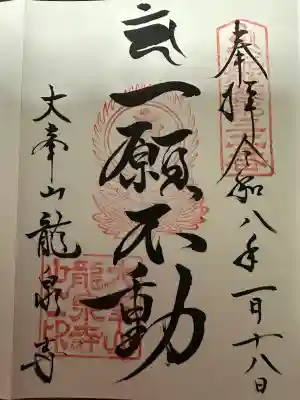 奉拝 令和八年一月十八日
一願不動
大峯山龍泉寺
大峯山
龍泉寺
山之印